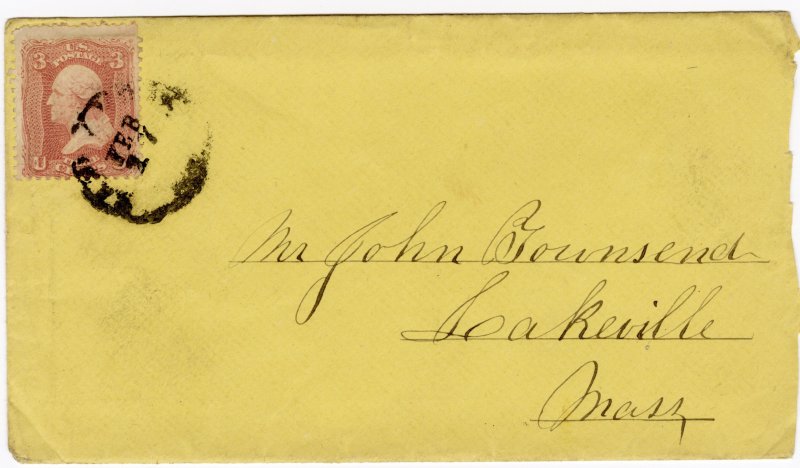 3 U.S. 3
POSTAGE
U
CENTS
FEB
Mr John Townsend
Lakeville
Mass